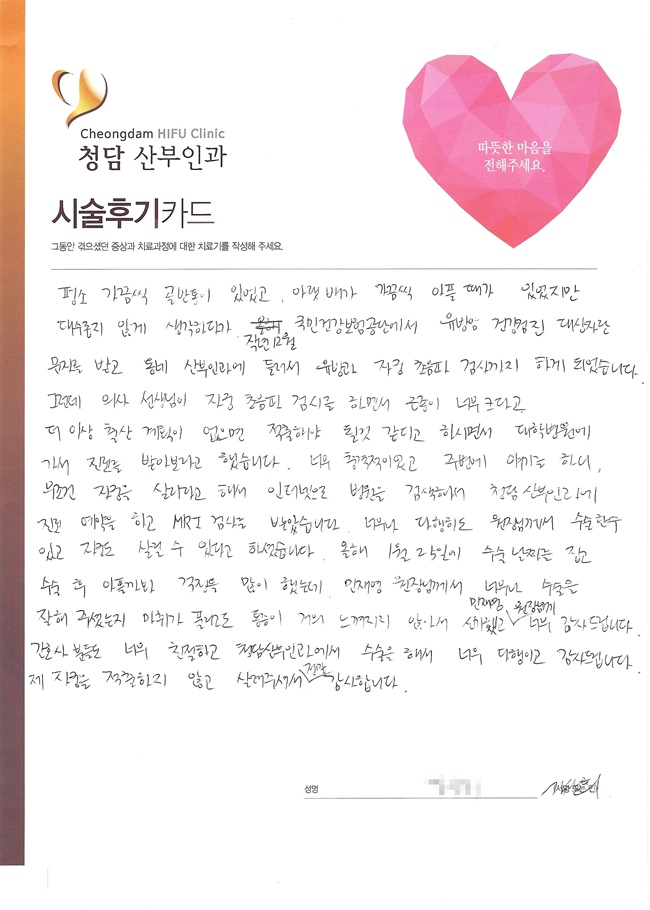 Cheongdam HIFU Clinic
청담 산부인과
따뜻한 마음을
전해주세요.
시술후기카드
그동안 겪으셨던 증상과 치료과정에 대한 치료기를 작성해 주세요.
평소 가끔씩 골반통이 있었고, 아랫배가 가끔씩 아플 때가 있었지만
대수롭지 않게 생각하다가 작년 12월 국민건강보험공단에서 유방암 건강검진 대상자란
문자를 받고 동네 산부인과에 들러서 유방과 자궁 초음파 검사까지 하게 되었습니다.
그런데 의사 선생님이 자궁 초음파 검사를 하면서 근종이 너무 크다고
더 이상 출산 계획이 없으면 적출해야 될것 같다고 하시면서 대학병원에
가서 진료를 받아보라고 했습니다. 너무 충격적이었고 주변에 얘기를 하니,
무조건 자궁을 살리라고 해서 인터넷으로 병원을 검색해서 청담산부인과에
진료 예약을 하고 MRI 검사를 받았습니다. 너무나 다행히도 원장님께서 수술할수
있고 자궁도 살릴 수 있다고 하셨습니다. 올해 1월 25일에 수술 날짜를 잡고
수술 후 아플까봐 걱정을 많이 했는데 민재영 원장님께서 너무나 수술을
잘해 주셨는지 마취가 풀려도 통증이 거의 느껴지지 않아서 신기했고 민재영 원장님께 너무 감사드립니다.
간호사 분들도 너무 친절하고 청담산부인과에서 수술을 해서 너무 다행이고 감사드립니다.
제 자궁을 적출하지 않고 살려주셔서 정말 감사합니다.
성명